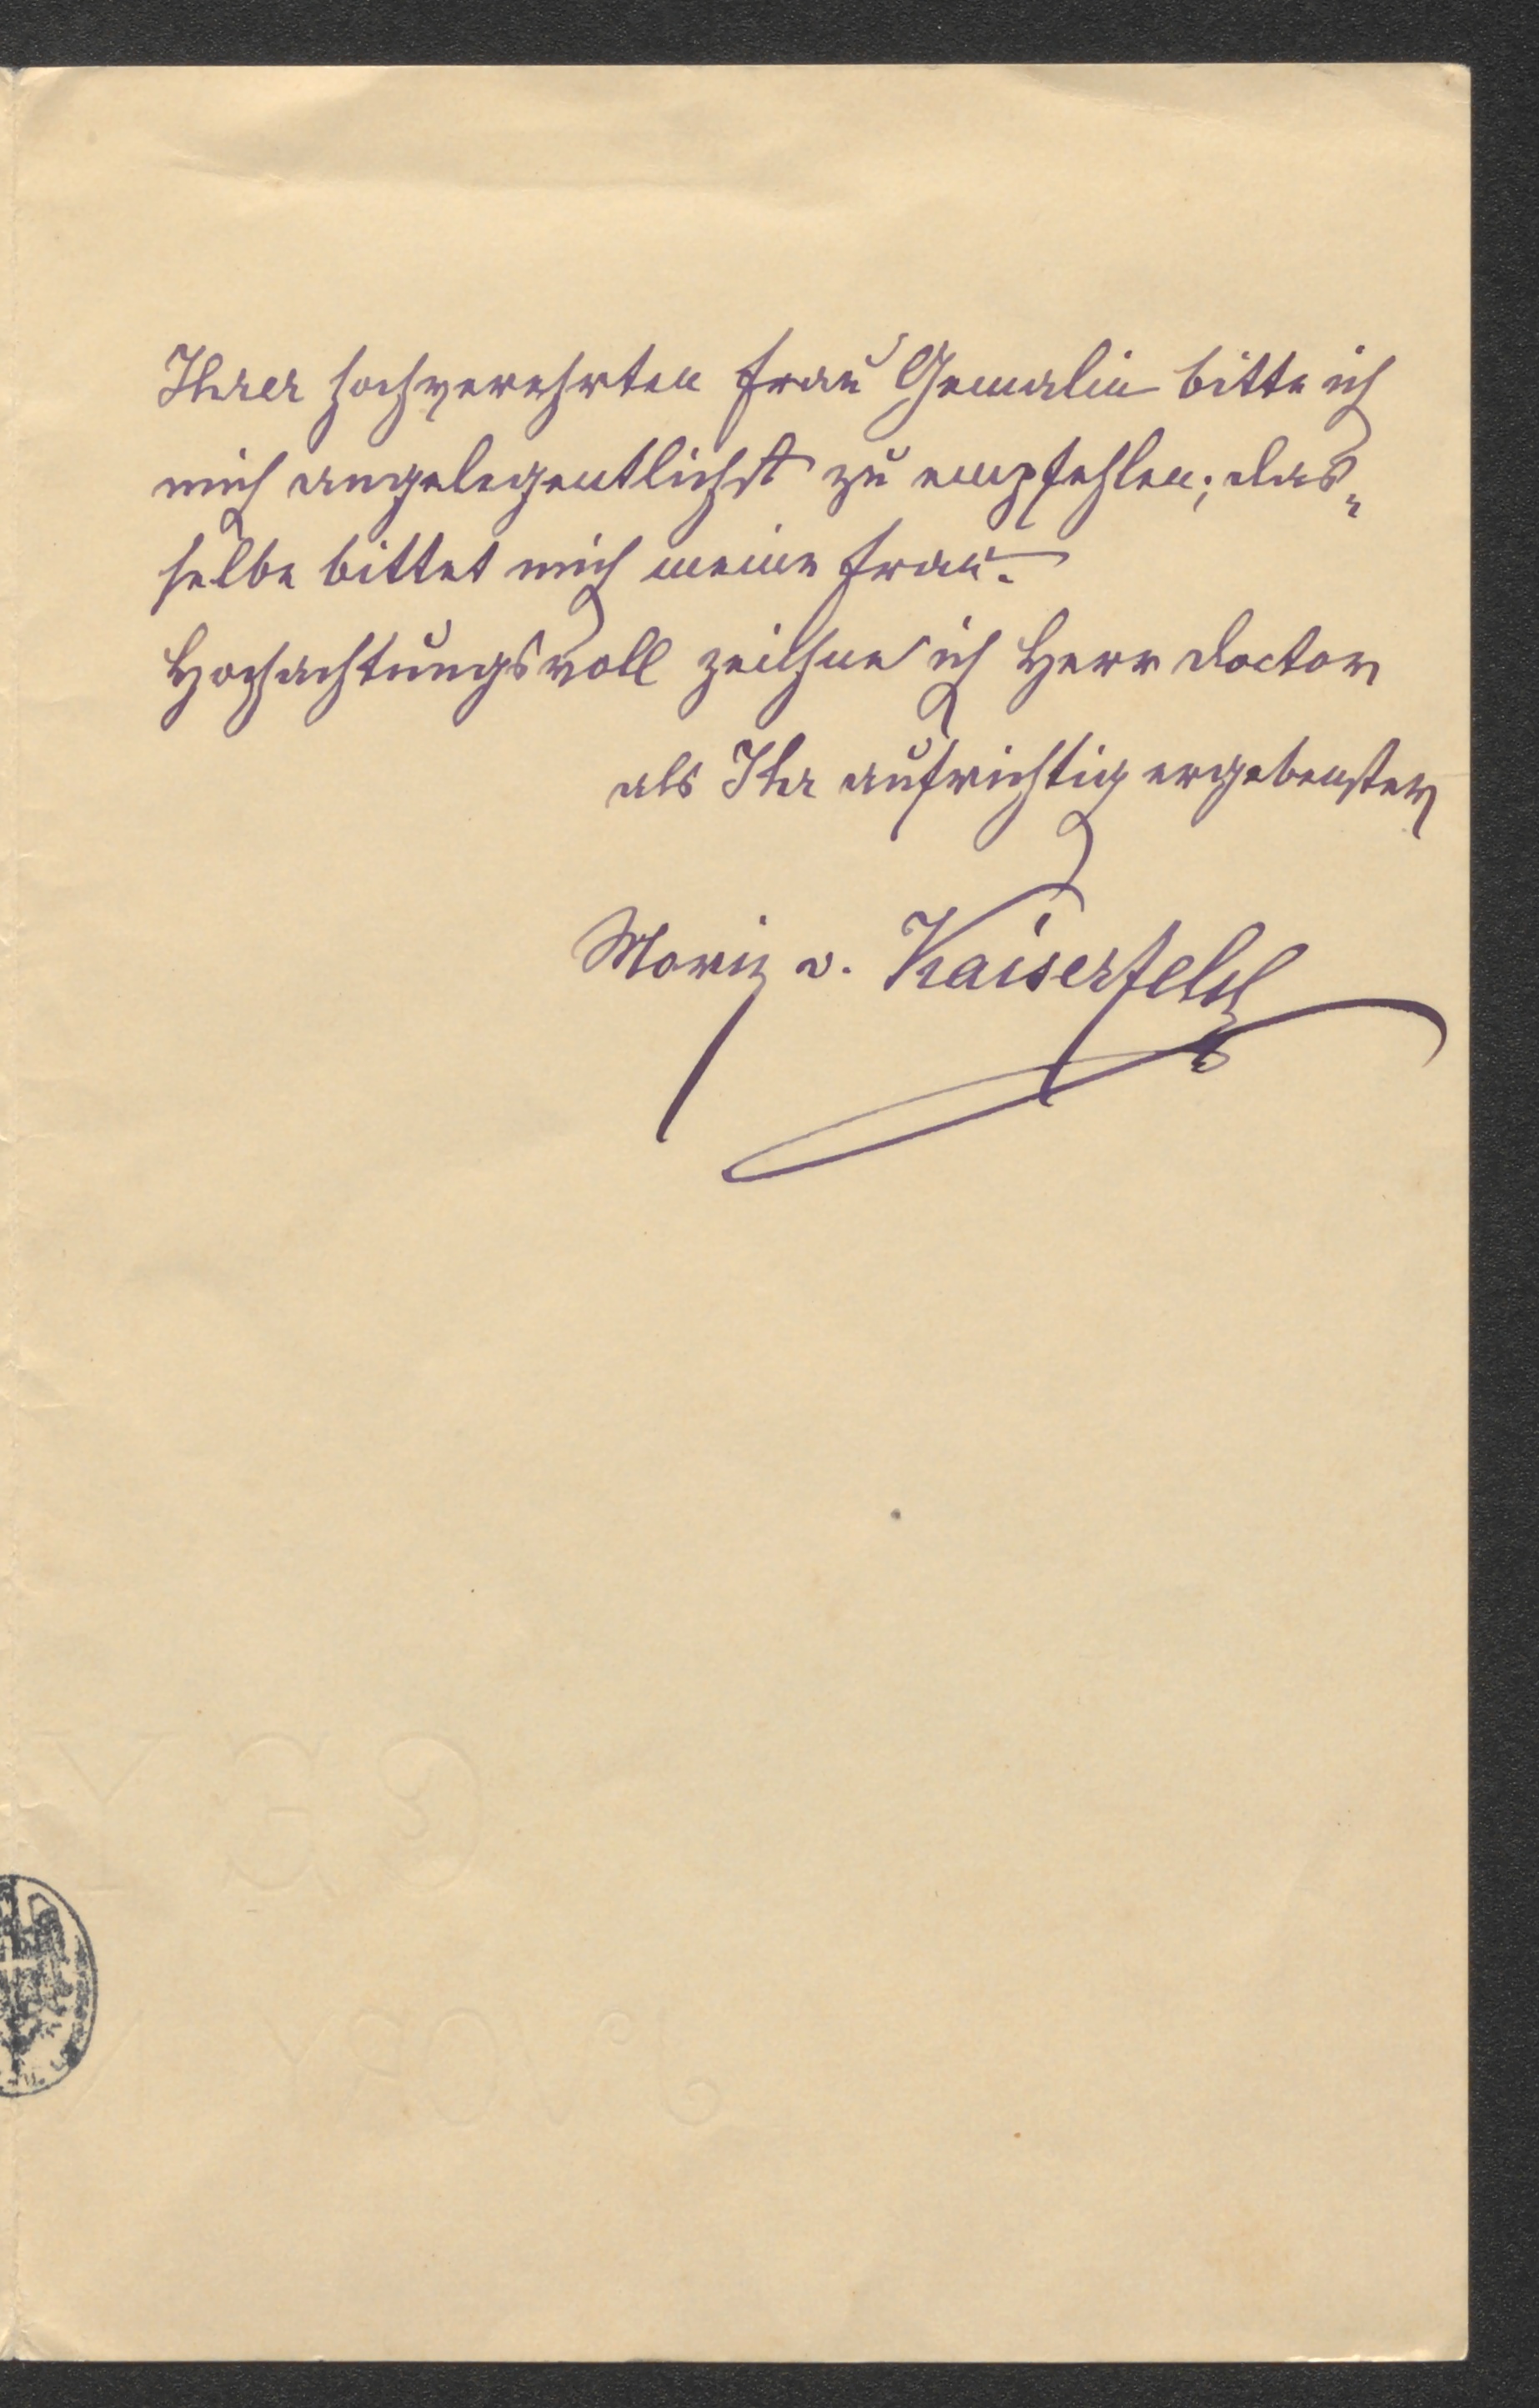 Ihrer hochverehrten Frau Gemalin bitte ich
mich angelegentlichst zu empfehlen; das„
selbe bittet mich meine Frau.
Hochachtungsvoll zeichne ich Herr Doctor
als Ihr aufrichtig ergebenster
Moriz v. Kaiserfeld